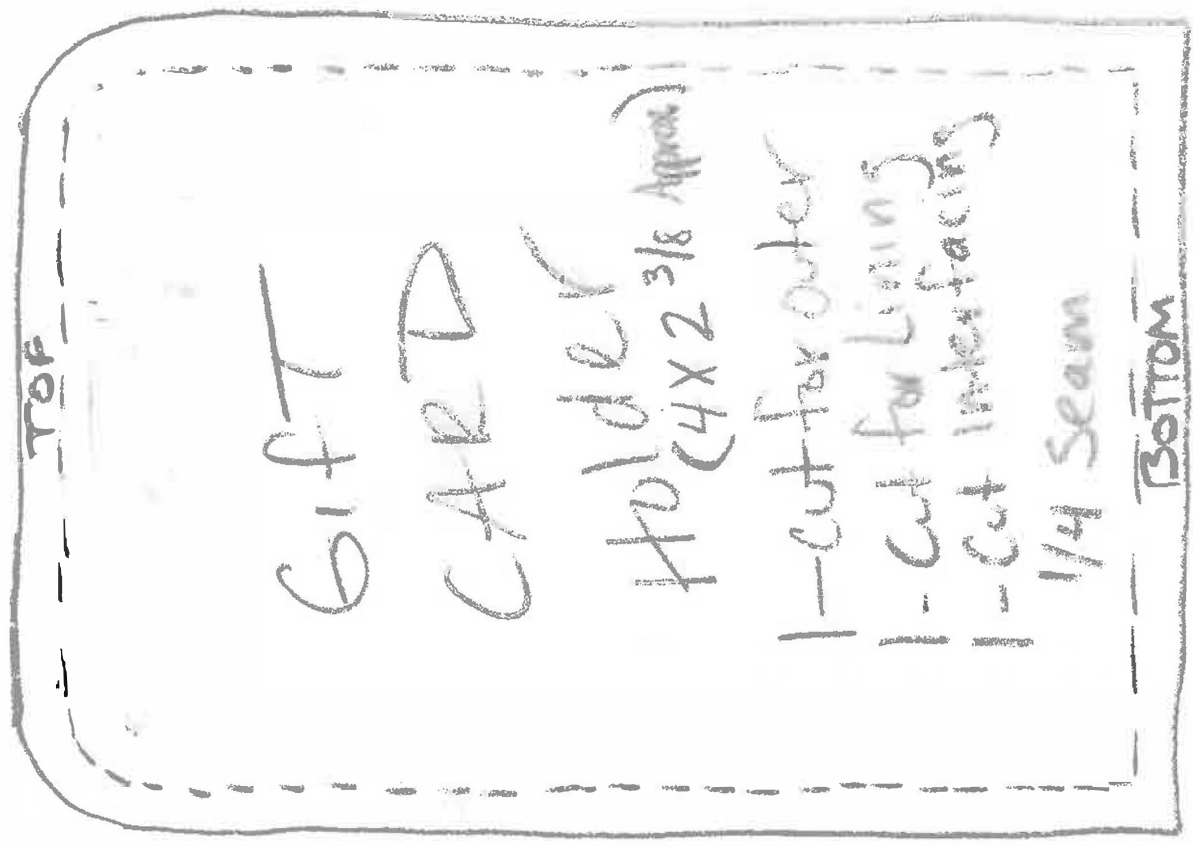 TOP
GIfT
CARD
Holder
(4 X 2 3/8 Approx)
1 - Cut for Outer
1 - Cut for Lining
1 - Cut Interfacing
1/4 Seam
BOTTOM